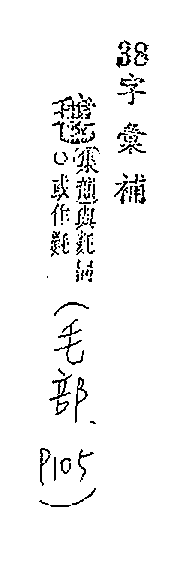 38字彙補
集韻與同
○或作
(毛部、P105)